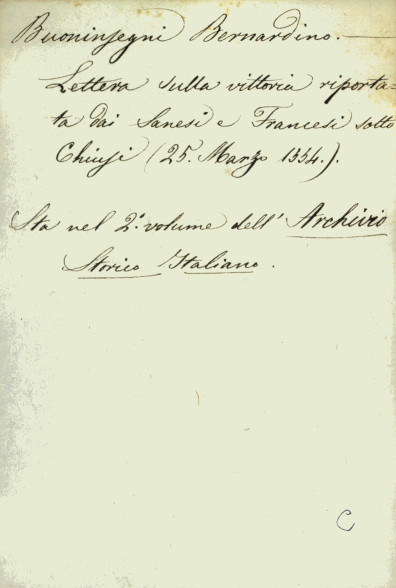 Buoninsegni Bernardino. —
Lettera sulla vittoria riporta=
ta dai Sanesi e Francesi sotto
Chiusi (25. Marzo 1554.).
Sta nel 2.° volume dell' Archivio
Storico Italiano.
C